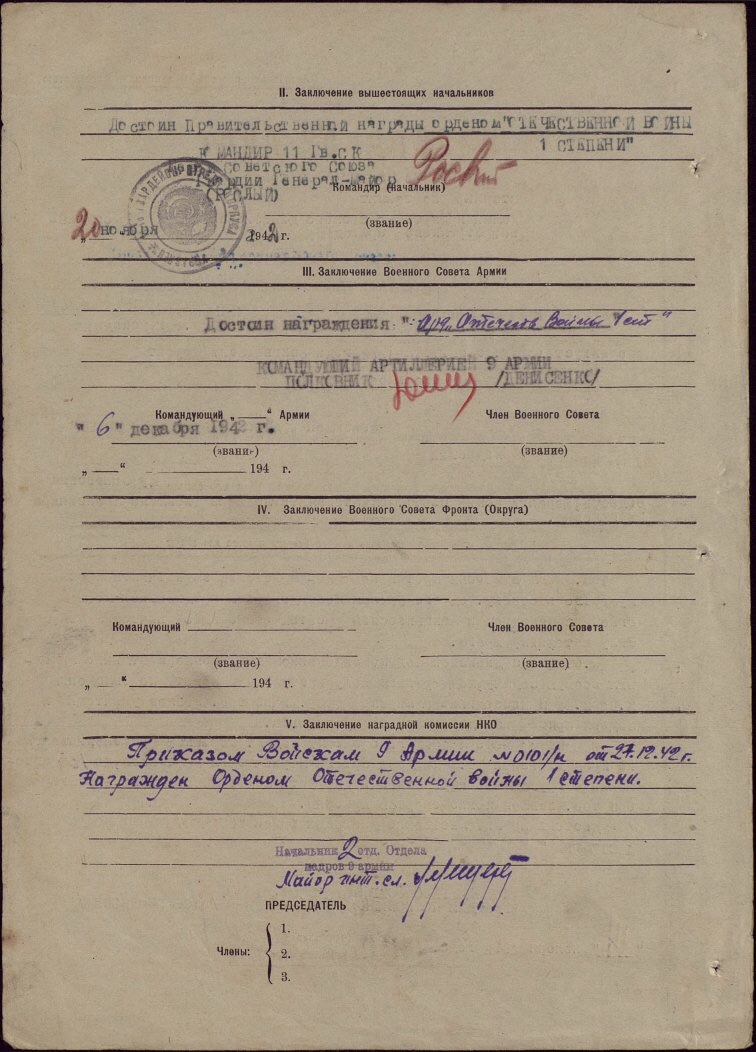 II. Заключение вышестоящих начальников
Достоин Правительственной награды орденом "ОТЕЧЕСТВЕННОЙ ВОЙНЫ
1 СТЕПЕНИ"
КОМАНДИР 11 Гв.СК
Советского Союза
Генерал-майор
Командир (начальник)
(РОСЛЫЙ)
(звание)
„20 ноября 1942 г.
III. Заключение Военного Совета Армии
Достоин награждения "Орд. Отечеств Войны 1 ст"
КОМАНДУЮЩИЙ АРТИЛЛЕРИЕЙ 9 АРМИИ
ПОЛКОВНИК /ДЕНИСЕНКО/
Командующий „ “ Армии Член Военного Совета
"6" декабря 1942 г.
(звание) (звание)
„ “ 194 г.
IV. Заключение Военного Совета Фронта (Округа)
Командующий Член Военного Совета
(звание) (звание)
„ “ 194 г.
V. Заключение наградной комиссии НКО
Приказом Войскам 9 Армии № 0101/н от 27.12.42 г.
Награжден Орденом Отечественной войны 1 степени.
Начальник 2 отд. Отдела
кадров 9 армии
Майор инт. сл.
ПРЕДСЕДАТЕЛЬ
Члены:
1.
2.
3.